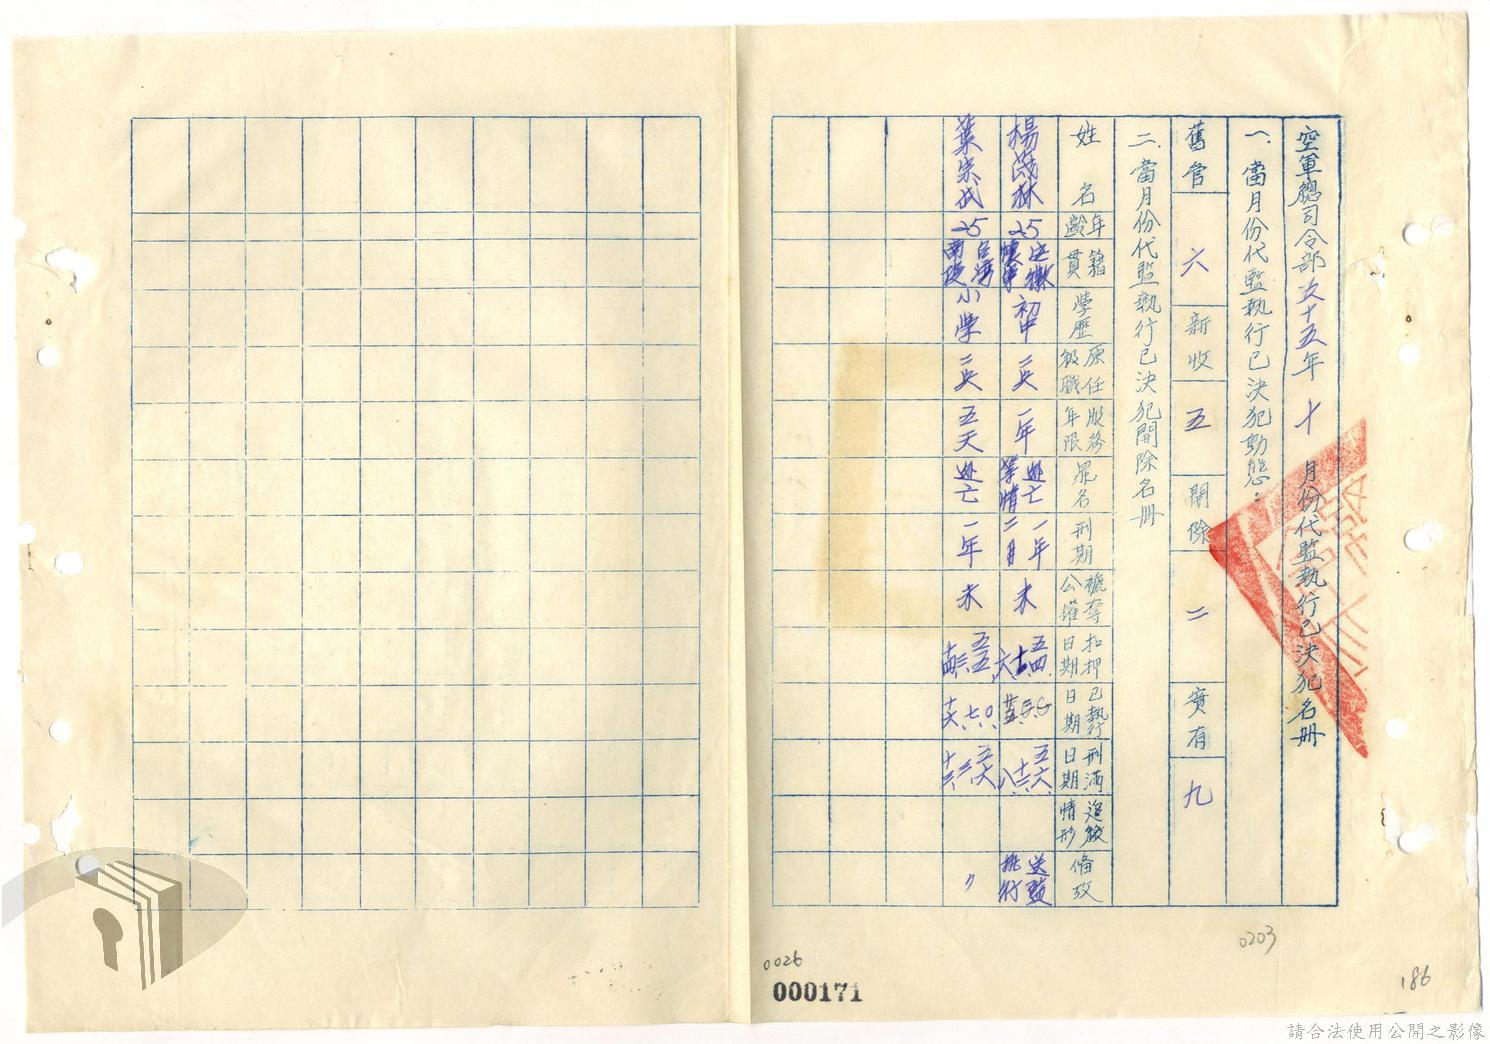 空軍總司令部 五十五年 十 月份代監執行已決犯名冊
一. 當月份代監執行已決犯動態：
舊管 六 新收 五 開除 二 實有 九
二. 當月份代監執行已決犯開除名冊
姓名 年齡 籍貫 學歷 原任級職 服務年限 罪名 刑期 褫奪公權 扣押日期 已執行日期 刑滿日期 追繳情形 備攷
楊茂林 25 安徽懷寧 初中 二兵 一年 逃亡等情 一年二月 未 五四. 十. 六. 五六. 十二. 八. 送監執行
葉宗武 25 台灣南投 小學 二兵 五天 逃亡 一年 未 五五. 三. 十四 〃
0203
0026
000171
186
請合法使用公開之影像